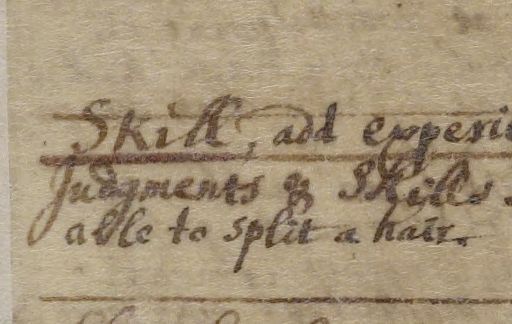 Skill, add experi
Judgments & Skills
able to split a hair.